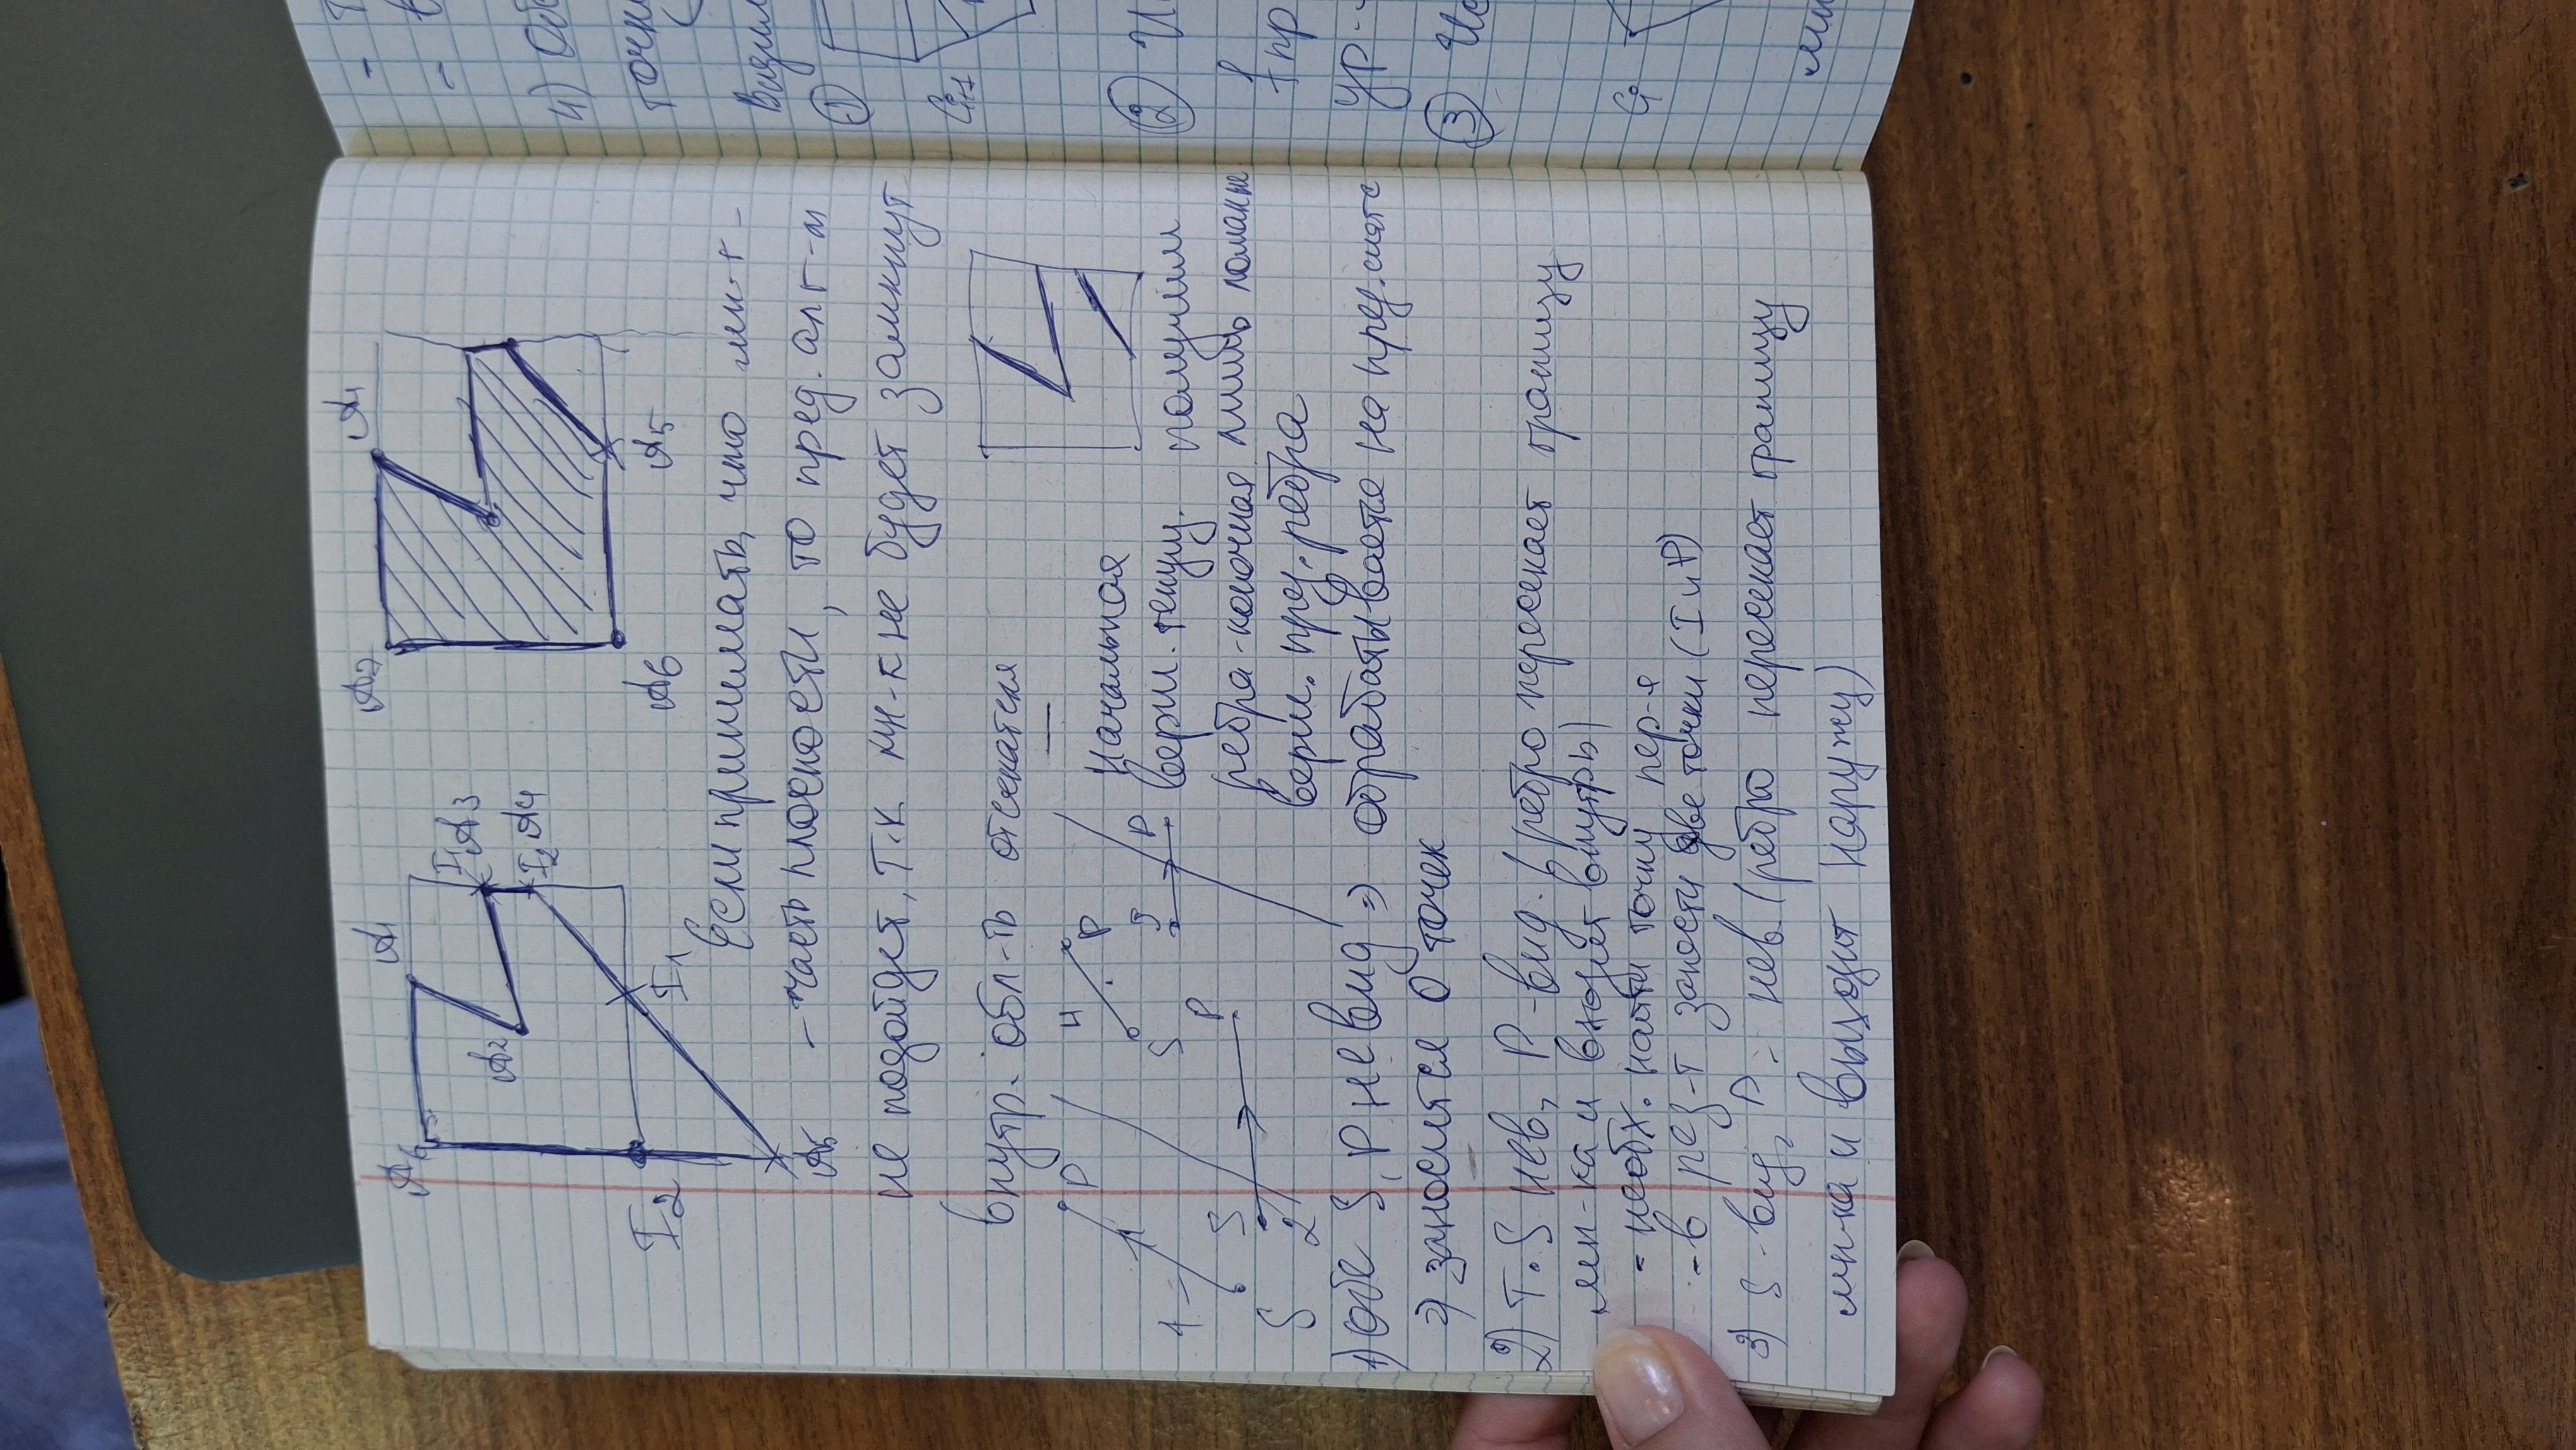 A6 A1
I1 A3
A2
I2 A4
I2
I1
A5
A7 A1
A6 A5
Если принимать, что мн-г-
- часть плоскости, то пред. алг-м
не подойдет, т.к. мн-к не будет замкнут
внутр. обл-ть
P 4 P
S
3 P
1
S P
S 2
Начальная
верш. текущ.
ребра-конечная
верш. пред. ребра
получим
лишь ломаные
1) обе S, P невид => обрабатывается на пред.
=> заносится 0 точек
2) т. S нев, P-вид. (ребро пересекает границу
мн-ка и входит внутрь)
- необх. найти точку пер-я
- в рез-т занести две точки (I и P)
3) S-вид, P - нев (ребро пересекает границу
мн-ка и выходит наружу)
4)
точк
Видим
1
2 И
пр
ур-
3 Ис